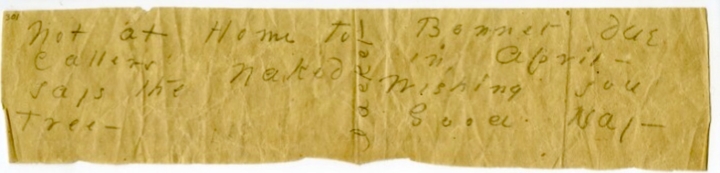 Not at Home to
Callers
says the Naked
Tree –
Jacket
Bonnet due
in April –
Wishing you
Good Day –